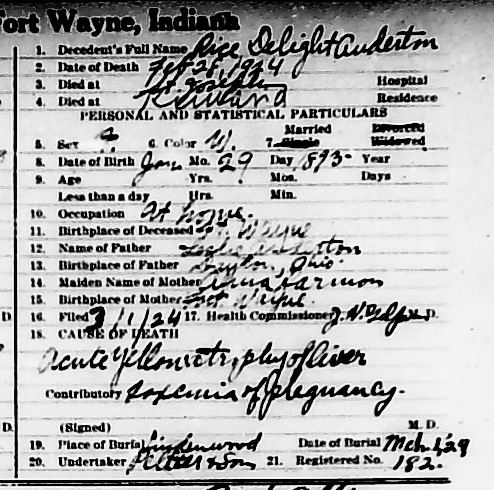 Fort Wayne, Indiana
1. Decedent's Full Name Rice Delight Anderton
2. Date of Death Feb 28, 1924
3. Died at St. Joseph Hospital
4. Died at Residence
PERSONAL AND STATISTICAL PARTICULARS
Married Divorced
5. Sex F. 6. Color W. 7. Single Widowed
8. Date of Birth Jan Mo. 29 Day 1893 Year
9. Age Yrs. Mos. Days
Less than a day Hrs. Min.
10. Occupation At home.
11. Birthplace of Deceased Ft. Wayne
12. Name of Father Anderton
13. Birthplace of Father Dayton, Ohio.
14. Maiden Name of Mother Anna Harmon
15. Birthplace of Mother Fort Wayne
D. 16. Filed 3/1/24 17. Health Commissioner J. H. M. D.
18. CAUSE OF DEATH
Acute yellow atrophy of liver
Contributory Toxemia of pregnancy.
D. (Signed) M. D.
19. Place of Burial Lindenwood Date of Burial Mch 1, 24
20. Undertaker & Son 21. Registered No. 182.